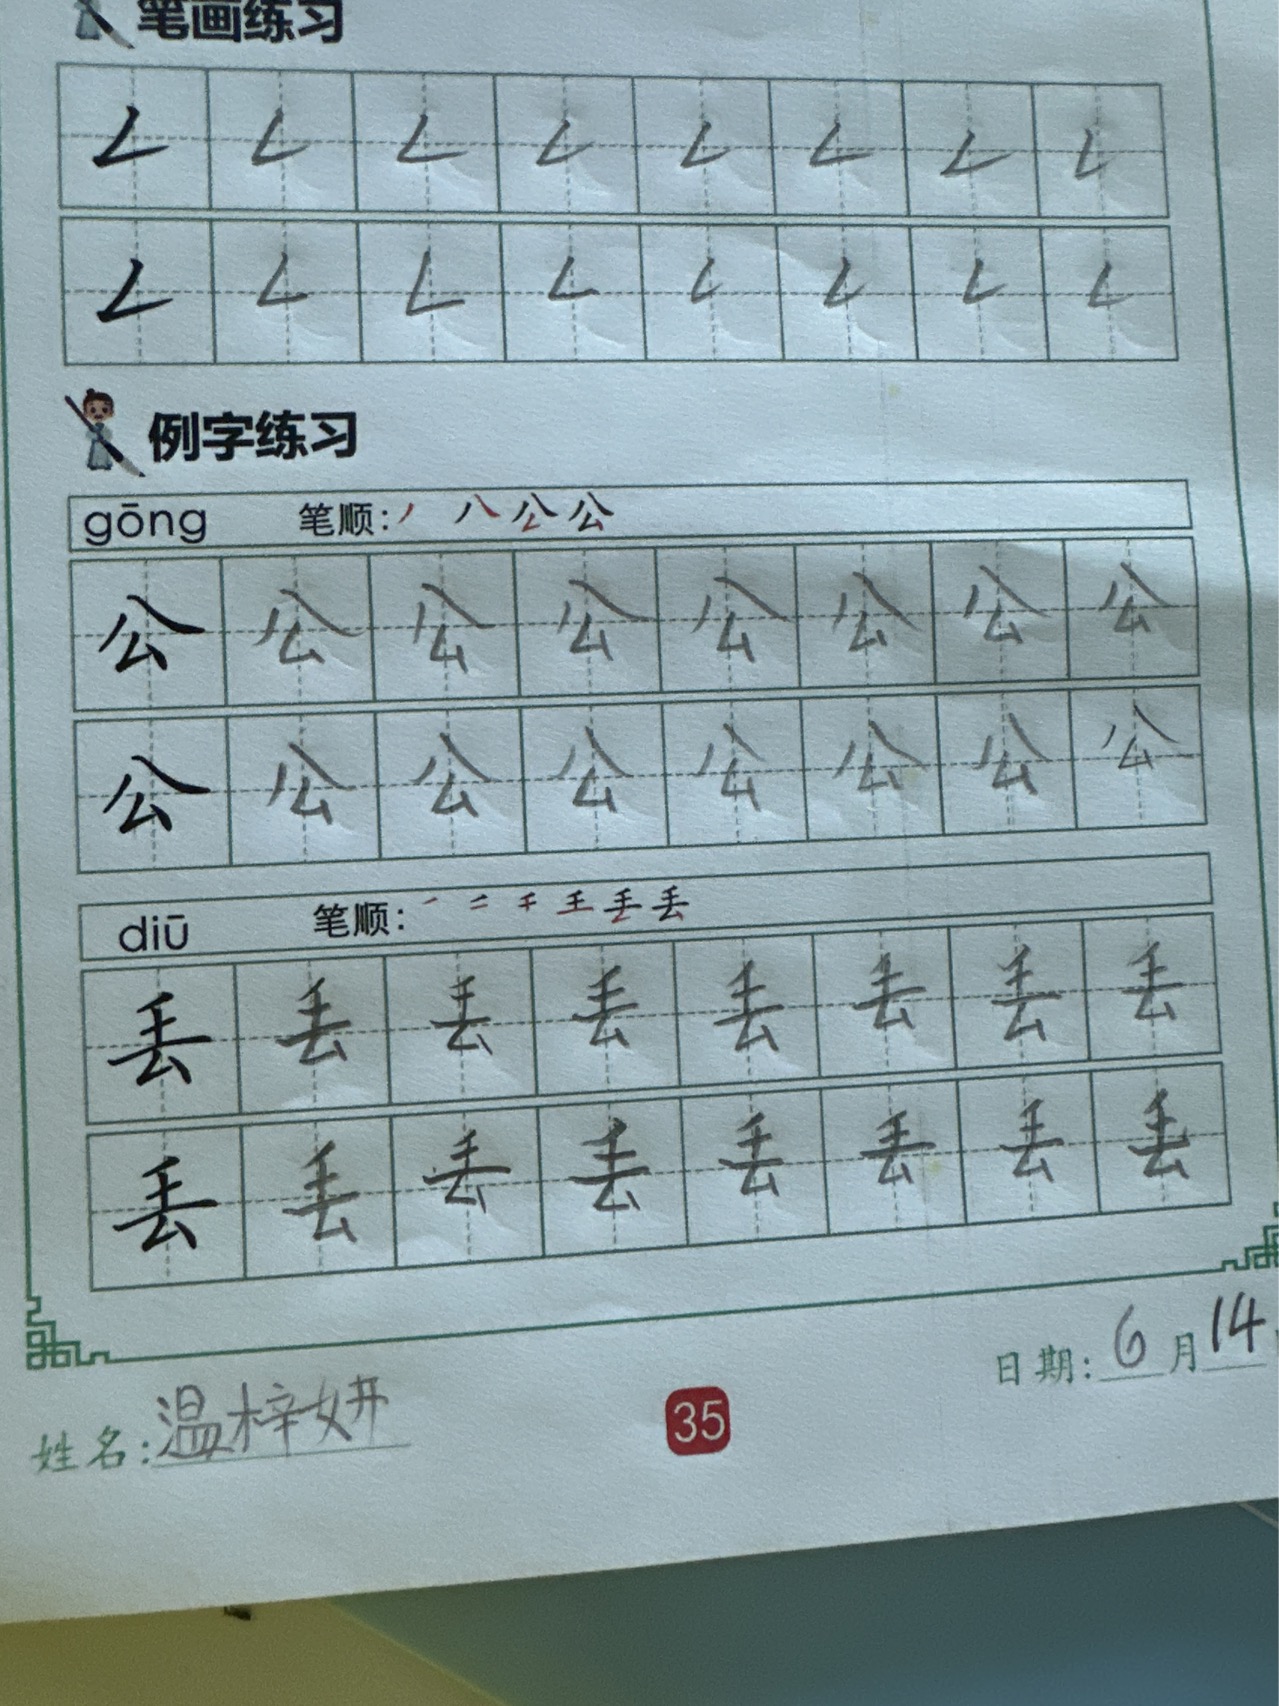 笔画练习
𠃋 𠃋 𠃋 𠃋 𠃋 𠃋 𠃋 𠃋
𠃋 𠃋 𠃋 𠃋 𠃋 𠃋 𠃋 𠃋
例字练习
gōng 笔顺: 丿 八 公 公
公 公 公 公 公 公 公 公
公 公 公 公 公 公 公 公
diū 笔顺: ㇒ 二 千 王 丢 丢
丢 丢 丢 丢 丢 丢 丢 丢
丢 丢 丢 丢 丢 丢 丢 丢
日期: 6 月 14
姓名: 温梓妍
35